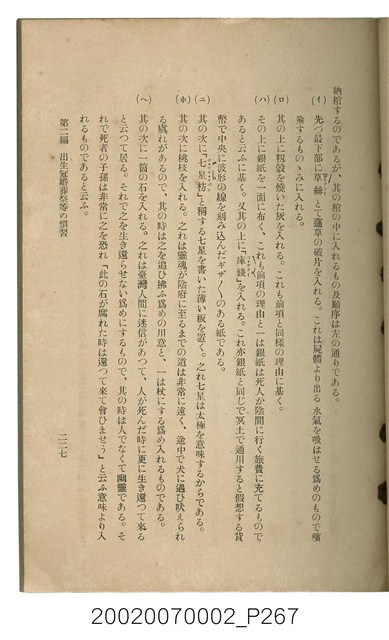 納棺するのであるが、其の棺の中に入れるもの及順序は左の通りである。
(イ) 先づ最下部に草絲とて蓪草の破片を入れる。これは屍體より出る水氣を吸はせる爲めのもので殯
殮するものゝみに入れる。
(ロ) 其の上に籾殼を燒いた灰を入れる。これも前項と同樣の理由に基く。
(ハ) その上に銀紙を一面に布く、これも前項の理由と一は銀紙は死人が陰間に行く旅費に充てるもので
あると云ふに基く。又其の上に「庫錢」を入れる。これ亦銀紙と同じで冥土で通用すると假想する貨
幣で中央に波形の線を刻み込んだギザ〳〵のある紙である。
(ニ) 其の次に「七星枋」と稱する七星を書いた薄い板を置く。之れ七星は太極を意味するからである。
(ホ) 其の次に桃枝を入れる。之れは靈魂が陰府に至るまでの道は非常に遠く、途中で犬に遇ひ吠えられ
る虞れがあるので、其の時は之を追ひ拂ふ爲めの用意と、一は杖にする爲め入れるものである。
(ヘ) 其の次に一箇の石を入れる。之れは臺灣人間に迷信があつて、人が死んだ時に更に生き還つて來る
と云つて居る。それで之を生き還らせない爲めにするもので、其の時は人でなくて幽靈である。そ
れで死者の子孫は非常に之を恐れ「此の石が腐れた時は還つて來て會ひませう」と云ふ意味より入
れるものであると云ふ。
第二編 出生冠婚葬祭等の慣習
二二七
20020070002_P267